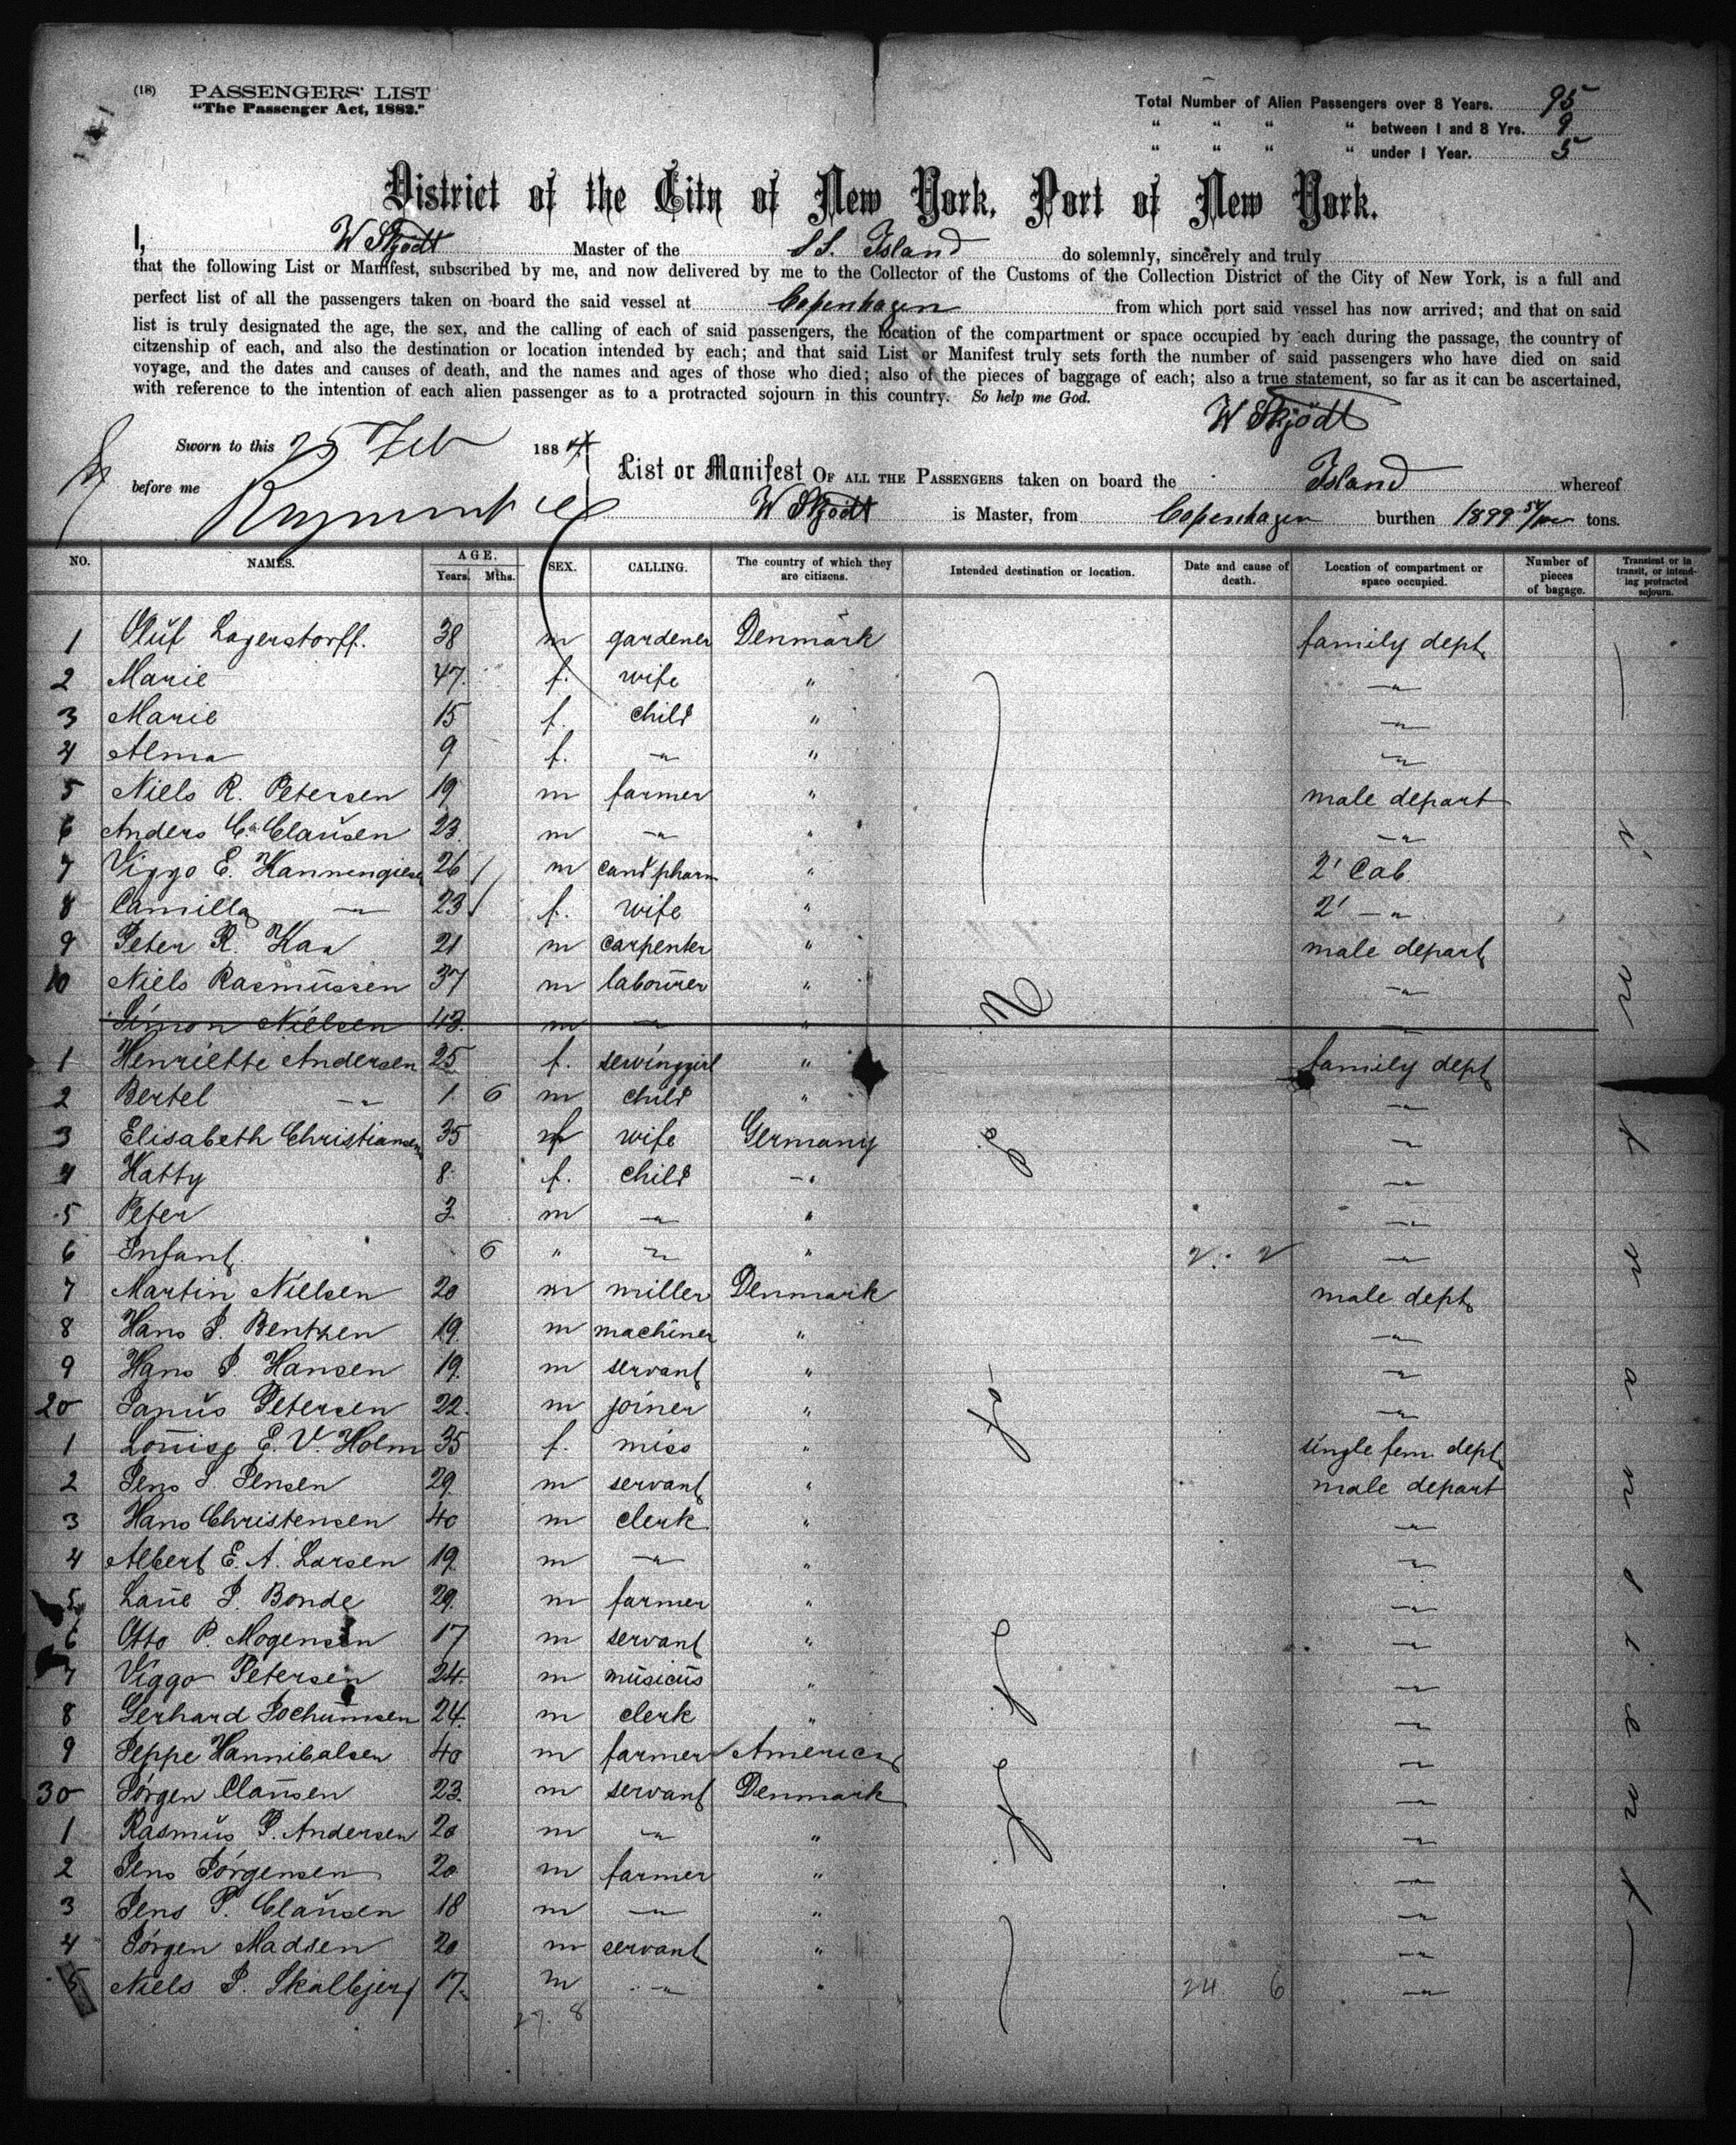 (18) PASSENGERS' LIST
"The Passenger Act, 1882."
Total Number of Alien Passengers over 8 Years. 95
" " " " between 1 and 8 Yrs. 9
" " " " under 1 Year. 5
District of the City of New York, Port of New York.
I, W Skjödt Master of the SS. Island do solemnly, sincerely and truly
that the following List or Manifest, subscribed by me, and now delivered by me to the Collector of the Customs of the Collection District of the City of New York, is a full and
perfect list of all the passengers taken on board the said vessel at Copenhagen from which port said vessel has now arrived; and that on said
list is truly designated the age, the sex, and the calling of each of said passengers, the location of the compartment or space occupied by each during the passage, the country of
citzenship of each, and also the destination or location intended by each; and that said List or Manifest truly sets forth the number of said passengers who have died on said
voyage, and the dates and causes of death, and the names and ages of those who died; also of the pieces of baggage of each; also a true statement, so far as it can be ascertained,
with reference to the intention of each alien passenger as to a protracted sojourn in this country. So help me God.
W Skjödt
Sworn to this 25 Feb 1884
before me
List or Manifest OF ALL THE PASSENGERS taken on board the Island whereof
W Skjödt is Master, from Copenhagen burthen 1899 tons.
NO. NAMES. AGE. Years. Mths. SEX. CALLING. The country of which they are citizens. Intended destination or location. Date and cause of death. Location of compartment or space occupied. Number of pieces of bagage. Transient or in transit, or intending protracted sojourn.
1 Oluf Lagerstorff. 38 m gardener Denmark family dept
2 Marie 47 f. wife " -"-
3 Marie 15 f. child " -"-
4 Alma 9 f. -"- " -"-
5 Niels R. Petersen 19 m farmer " male depart
6 Anders C. Clausen 23 m -"- " -"-
7 Viggo E. 26 m cand pharm " 2' Cab.
8 Camilla -"- 23 f. wife " 2' -"-
9 Peter R. 21 m carpenter " male depart
10 Niels Rasmussen 37 m labourer " -"-
Simon Nielsen 43 m -"- " -"-
1 Henriette Andersen 25 f. sewinggirl " family dept
2 Bertel -"- 1 6 m child " -"-
3 Elisabeth Christiansen 35 f wife Germany -"-
4 Hatty 8 f. child -"- -"-
5 Peter 3 m -"- " -"-
6 Infant 6 " -"- " -"-
7 Martin Nielsen 20 m miller Denmark male dept
8 Hans J. Bentzen 19 m machiner " -"-
9 Hans J. Hansen 19 m servant " -"-
20 Janus Petersen 22 m joiner " -"-
1 Louise E. V. Holm 35 f. miss " single fem. dept
2 Jens J. Jensen 29 m servant " male depart
3 Hans Christensen 40 m clerk " -"-
4 Albert E. A. Larsen 19 m -"- " -"-
5 Laue J. Bonde 29 m farmer " -"-
6 Otto P. Mogensen 17 m servant " -"-
7 Viggo Petersen 24 m musicus " -"-
8 Gerhard Jochumsen 24 m clerk " -"-
9 Jeppe Hannibalsen 40 m farmer America -"-
30 Jörgen Clausen 23 m servant Denmark -"-
1 Rasmus P. Andersen 20 m -"- " -"-
2 Jens Jörgensen 20 m farmer " -"-
3 Jens P. Clausen 18 m -"- " -"-
4 Jörgen Madsen 20 m servant " -"-
5 Niels J. Skalbjerg 17 m -"- " 24 6 -"-
27. 8